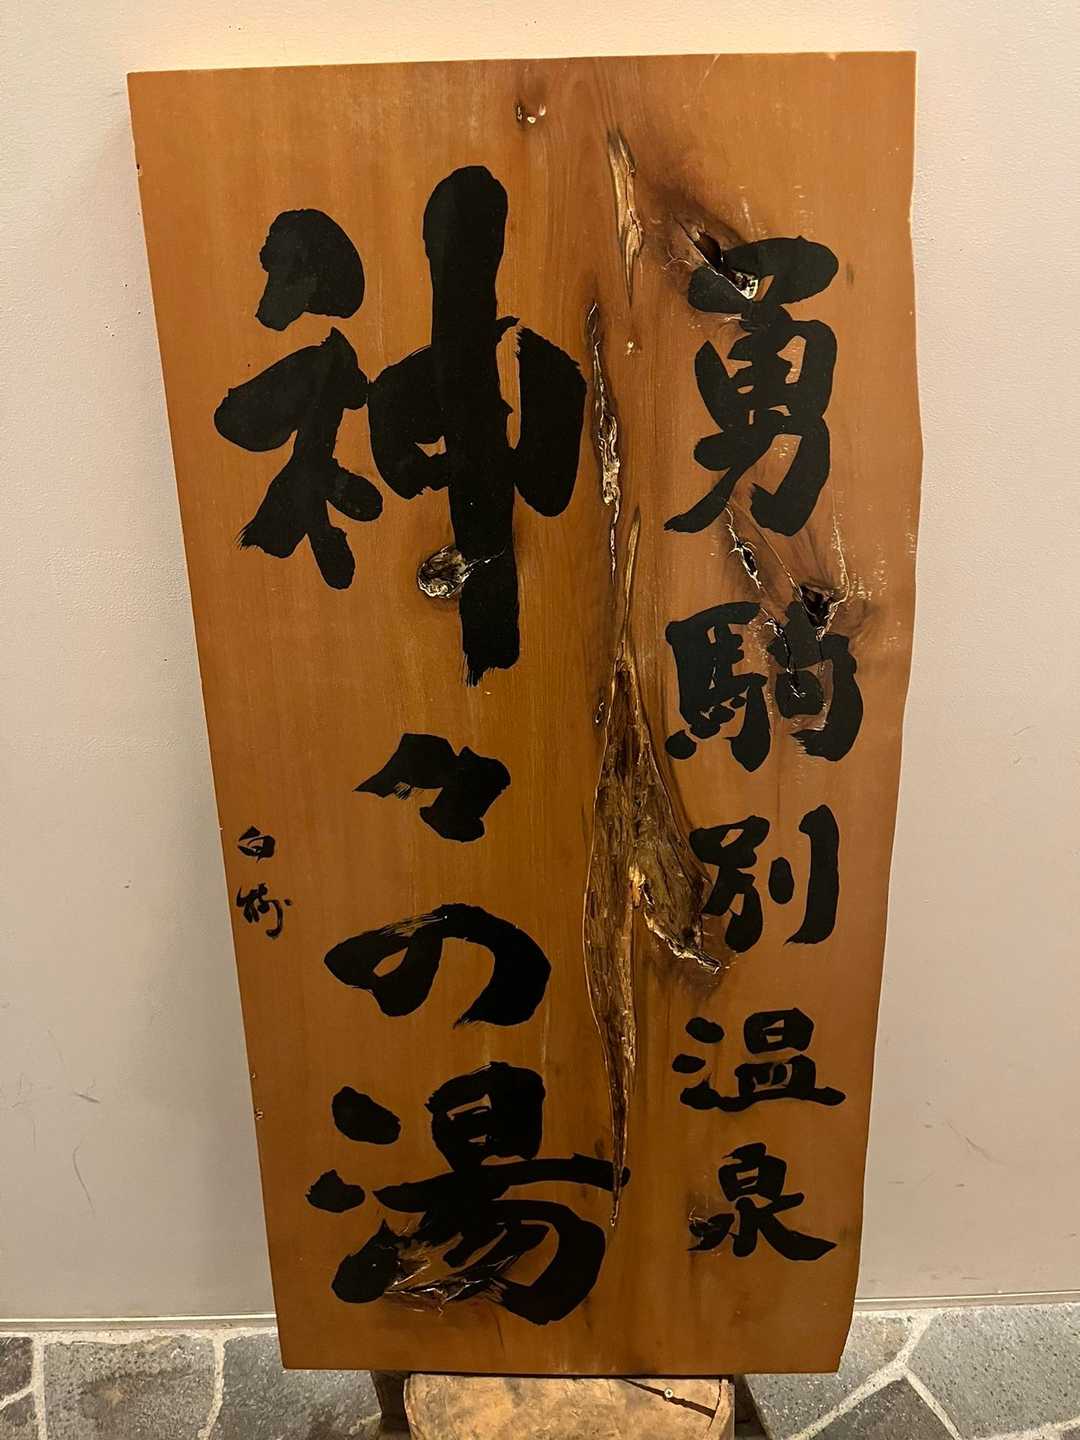 勇駒別温泉
神々の湯
白樹